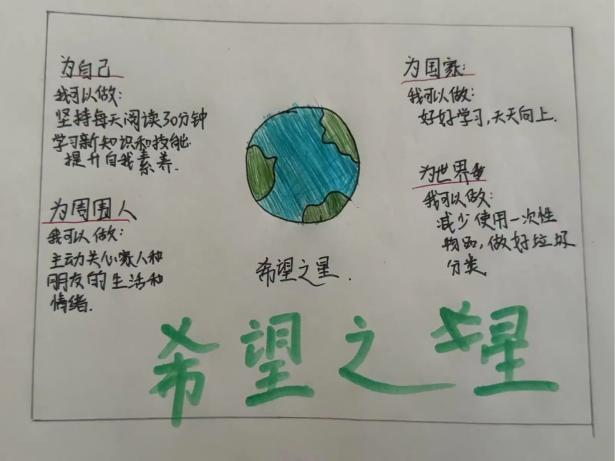 为自己
我可以做:
坚持每天阅读30分钟
学习新知识和技能
提升自我素养.
为周围人
我可以做:
主动关心家人和
朋友的生活和
情绪.
为国家:
我可以做:
好好学习,天天向上.
为世界
我可以做:
减少使用一次性
物品,做好垃圾
分类
希望之星.
希望之星